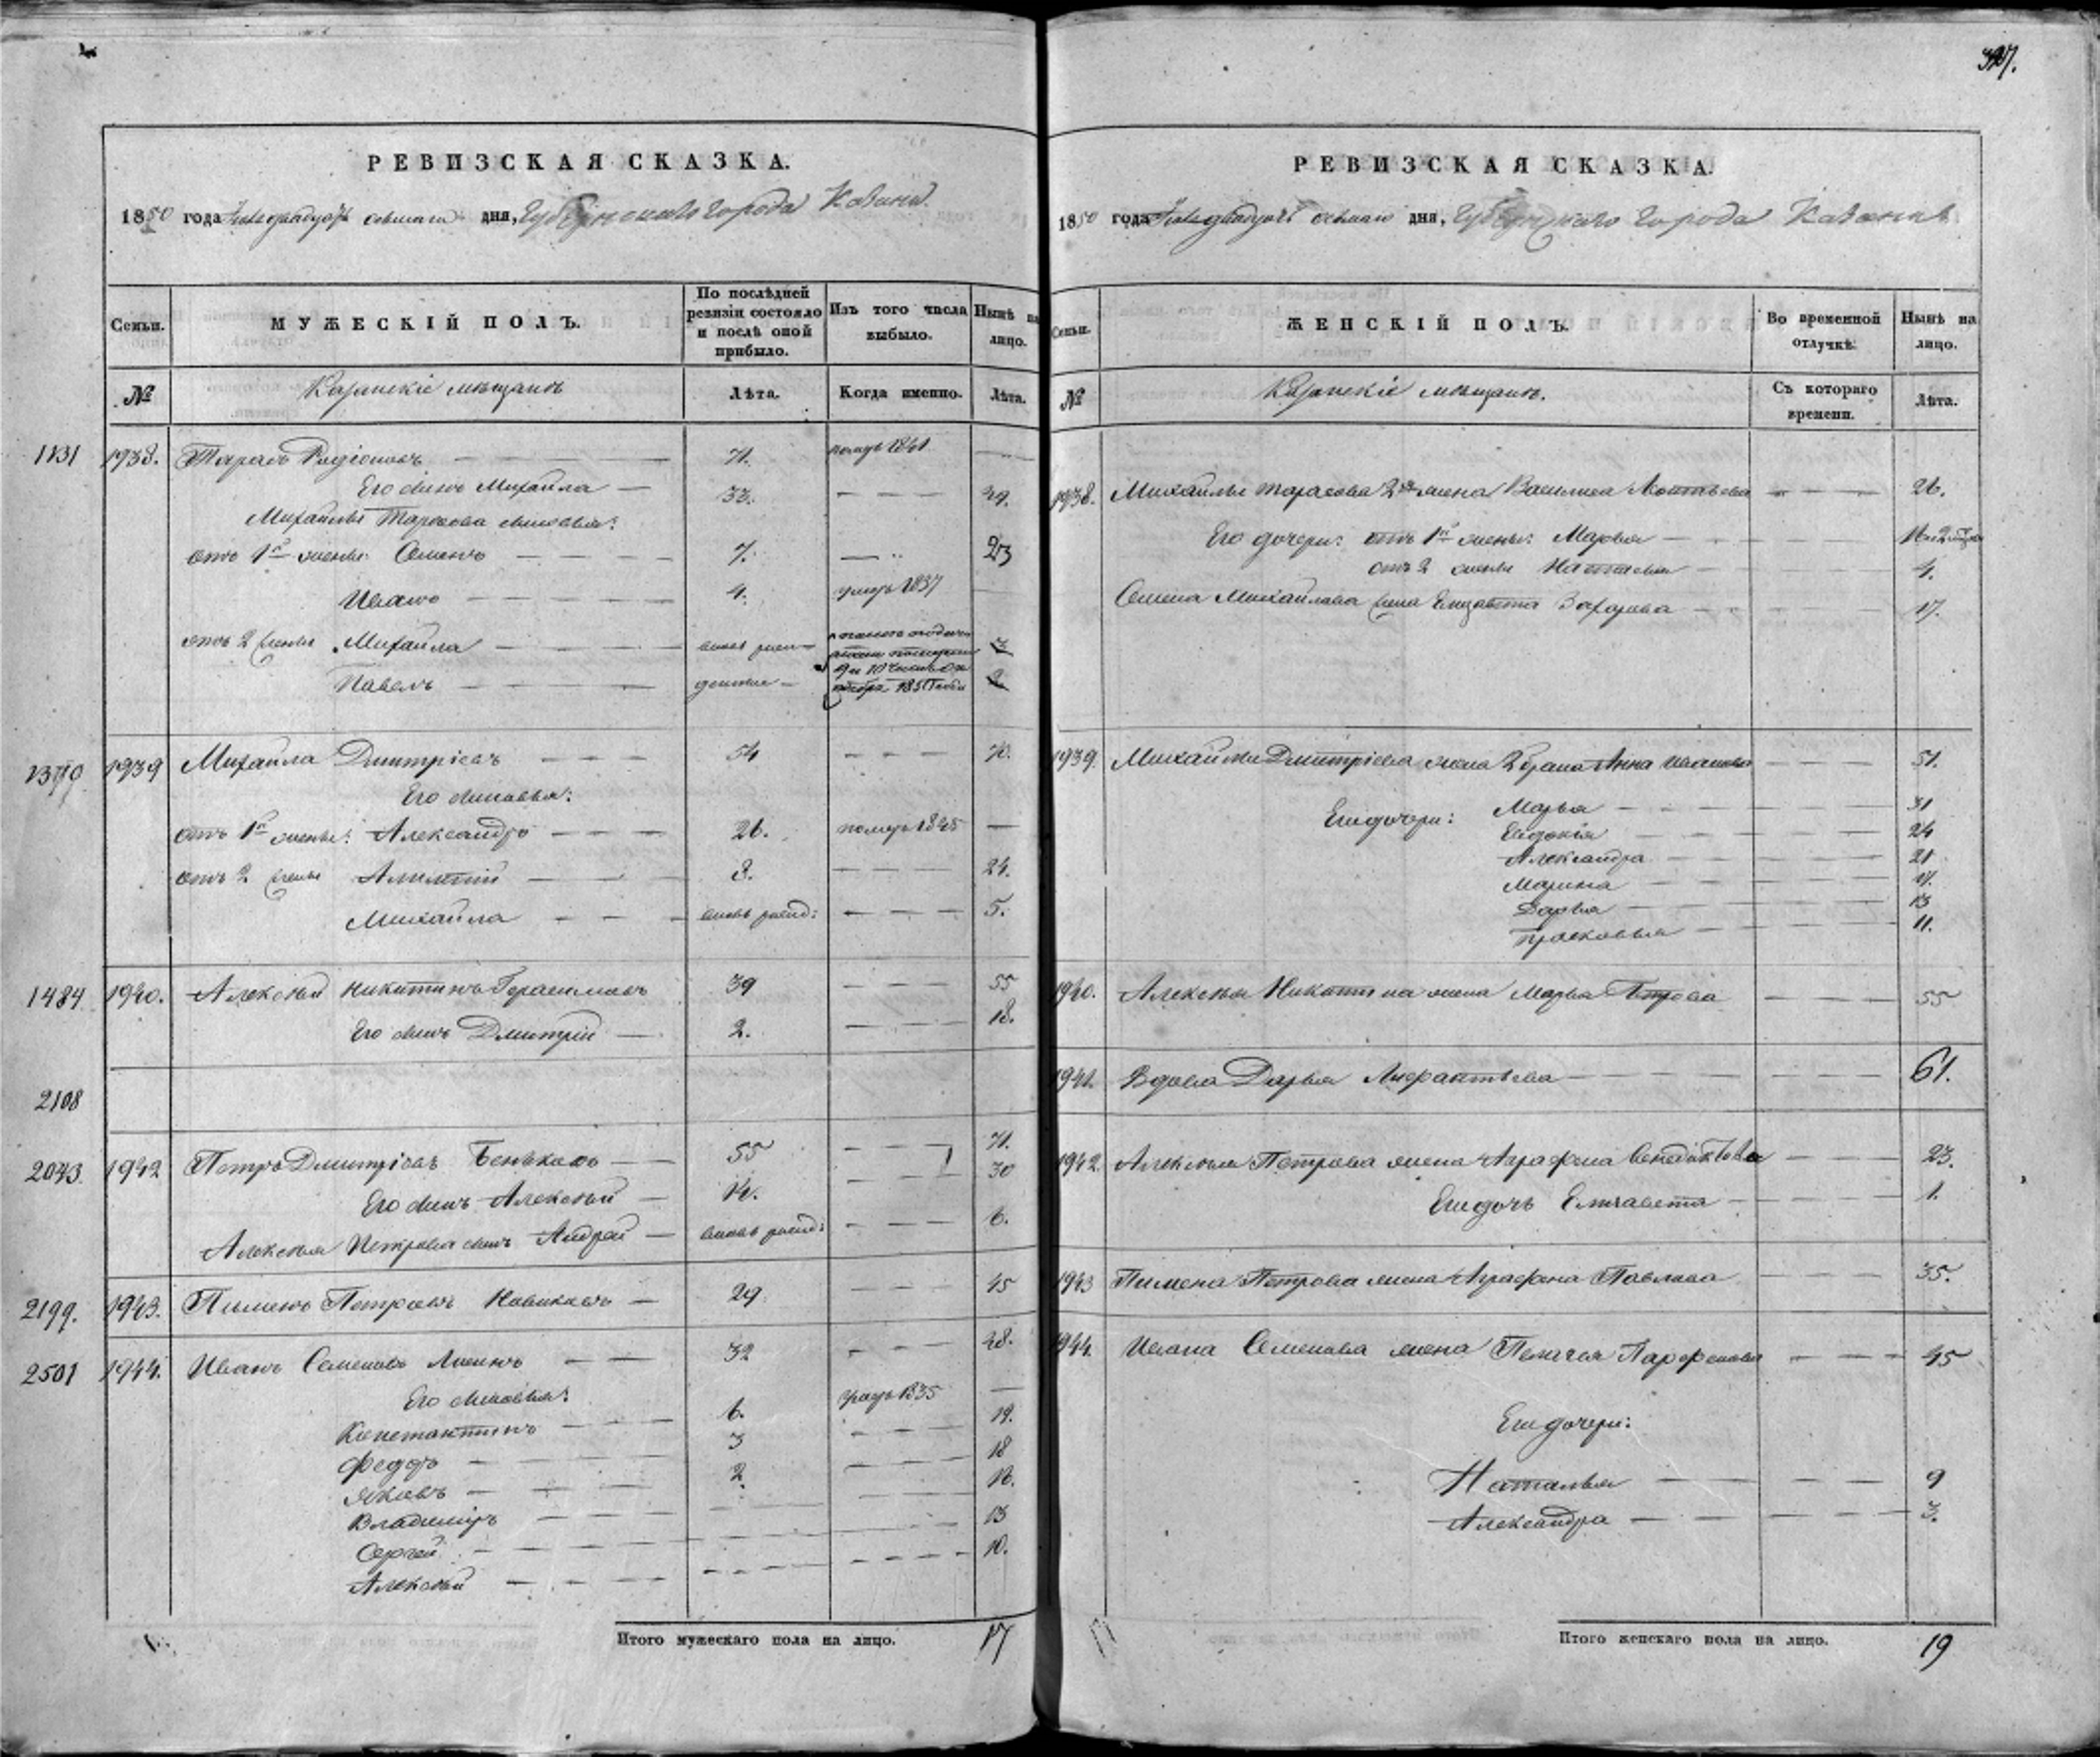 397.
РЕВИЗСКАЯ СКАЗКА.
1850 года дня, Губернскаго города Казани
Семьи. МУЖЕСКІЙ ПОЛЪ. По послѣдней ревизіи состояло и послѣ оной прибыло. Изъ того числа выбыло. Нынѣ на лицо.
№ Казанскіе мѣщане Лѣта. Когда именно. Лѣта.
1131 1938. Тарасъ Родіоновъ 71. 1841
Его сынъ Михайла 33.
Михайлы Тарасова сыновья:
отъ 1й жены Семенъ 7. 23
Иванъ 4. умеръ 1837
отъ 2 жены Михайла вновь рож 3
Павелъ 2
1939 Михайла Дмитріевъ 54 70.
Его сыновья:
отъ 1й жены: Александръ 26. померъ 1845
отъ 2 жены 8. 24.
Михайла вновь рожд: 5.
1484 1940. Алексѣй Никитинъ Герасимовъ 39 55
Его сынъ Дмитрій 2. 18.
2108
2043 1942 Петръ Дмитріевъ 55 71.
Его сынъ Алексѣй 14. 30
Алексѣя Петрова сынъ Андрей вновь рожд: 6.
2199. 1943. Пименъ Петровъ Новиковъ 29 45
2501 1944. Иванъ Семеновъ 32 48.
Его сыновья: 1835
Константинъ 6. 19.
Федоръ 3 18
Яковъ 2. 16.
Владиміръ 13
Сергей 10.
Алексѣй
Итого мужескаго пола на лицо. 17
РЕВИЗСКАЯ СКАЗКА.
1850 года дня, Губернскаго города Казани
Семьи. ЖЕНСКІЙ ПОЛЪ. Во временной отлучкѣ. Нынѣ на лицо.
№ Казанскіе мѣщане. Съ котораго времени. Лѣта.
1938. Михайлы Тарасова 2я жена Василиса 26.
Его дочери: отъ 1й жены: Марья
отъ 2 жены Наталья 4.
Семена Михайлова жена Елизавета Захарова 17.
1939. Михайлы Дмитріева жена 2 брака Анна Иванова 51.
Ихъ дочери: Марья 31
Евдокія 24
Александра 21
Марина
Дарья 13
Прасковья 11.
1940. Алексѣя Никитина жена Марья Петрова 55
1941. Вдова Дарья 61.
1942. Алексѣя Петрова жена Аграфена Венедиктова 23.
Ихъ дочь Елизавета 1.
1943 Пимена Петрова жена Аграфена Павлова 35.
1944. Ивана Семенова жена Пелагея Парфенова 45
Ихъ дочери:
Наталья 9
Александра 3.
Итого женскаго пола на лицо. 19